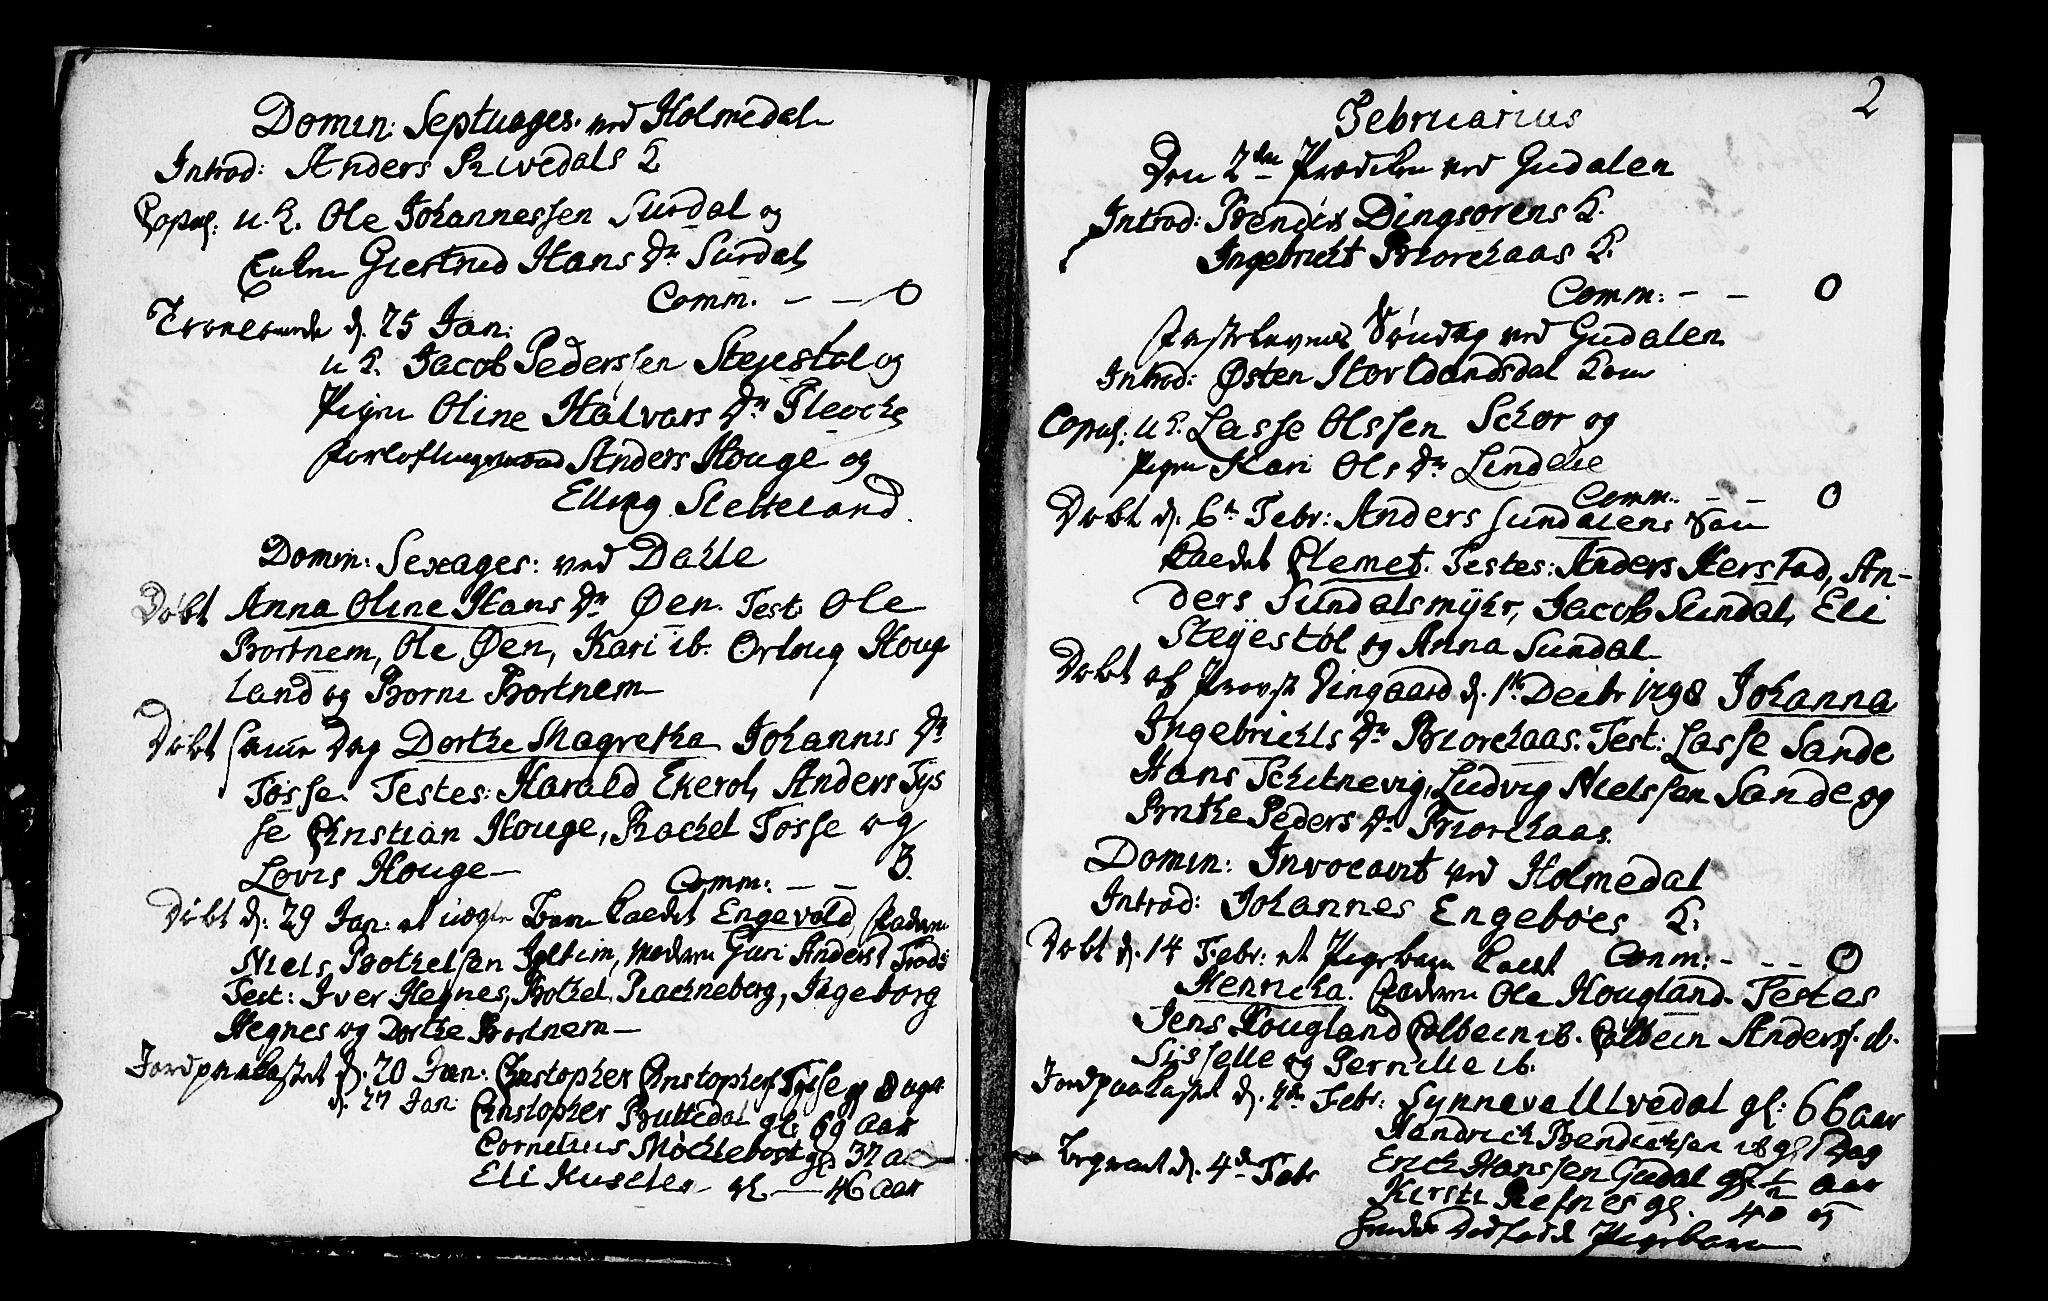 Domin: Septuages. ved Holmedal
Introd: Anders Rivedals K.
Copul: u. K. Ole Johannesen Surdal og
Enken Giertrud Hans Dr Surdal
Comm. - - 0
Troelovede d. 25 Jan:
u K. Jacob Pederssen Steiestøl og
Pigen Oline Halvars Dr Flecke
Forlofningsmænd Anders Houge og
Elling Sletteland.
Domin: Sexages: ved Dahle
Døbt Anna Oline Hans Dr Øen. Test. Ole
Bortnem, Ole Øen, Kari ib. Orloug Houg
land og Borni Bortnem
Døbt samme Dag Dorthe Magretha Johannis Dr
Tøsse. Testes: Harald Ekerol, Anders Tys
se Christian Houge, Rachel Tøsse og
Lovis Houge
Comm: - - 3.
Døbt d. 29 Jan: et uægte Barn kaldet Engevold, Faderen
Niels Bothelsen, Moderen Guri Anders D
Test: Iver Hegnes, Bothel Rachneberg, Ingeborg
Hegnes og Dorthe Bortnem
Jordpaakastet d. 20 Jan: Christopher Christophers. Tysse gl 8 Dage
d. 27 Jan: Christopher Bulledal gl: 69 Aar
Cornelius Møchlebost gl 37 a
Eli Kuselen gl - 46 Aar
2
Februarius
Den 2den Prædiken ved Gudalen
Introd: Bendix Dingsørens K.
Ingebricht Biørchaas K.
Comm: - - 0
Fastelavens Søndag ved Gudalen
Introd: Østen Horldandsdal Kone
Copul: u K. Lasse Olssen Schor og
Pigen Kari Ols Dr Lindeie
Comm. - - 0
Døbt d. 6te Febr: Anders Sundalens Søn
kaldet Clemet. Testes: Anders Herstad, An-
ders Sundalsmyhr, Jacob Sundal, Eli
Steyestøl og Anna Sundal
Døbt af Provst Dingaard d. 1te Decbr 1798 Johanna
Ingebrichts Dr Biorchaas. Test: Lasse Sande
Hans Schitnevig, Ludvig Nielssen Sande og
Brithe Peders Dr Biorchaas.
Domin: Invocavit ved Holmedal
Introd: Johannes Engebøes K.
Comm: - - - 0
Døbt d. 14 Febr: et Pigebarn kaldt
Henricha. Faderen Ole Hougland. Testes
Jens Hougland Colbein ib. Colbein Anderss. ib.
Sisselle og Pernille ib.
Jordpaakastet d. 2den Febr: Synneve Ulvedal gl: 66 Aar
Hendrich Bendichsen ib gl 1 Dag
Erich Hanssen Gudal gl 1/2 Aar
Begravet d. 4de Febr
Kirsti Refnes gl. 40 og
hendes Dødfødde Pigebarn